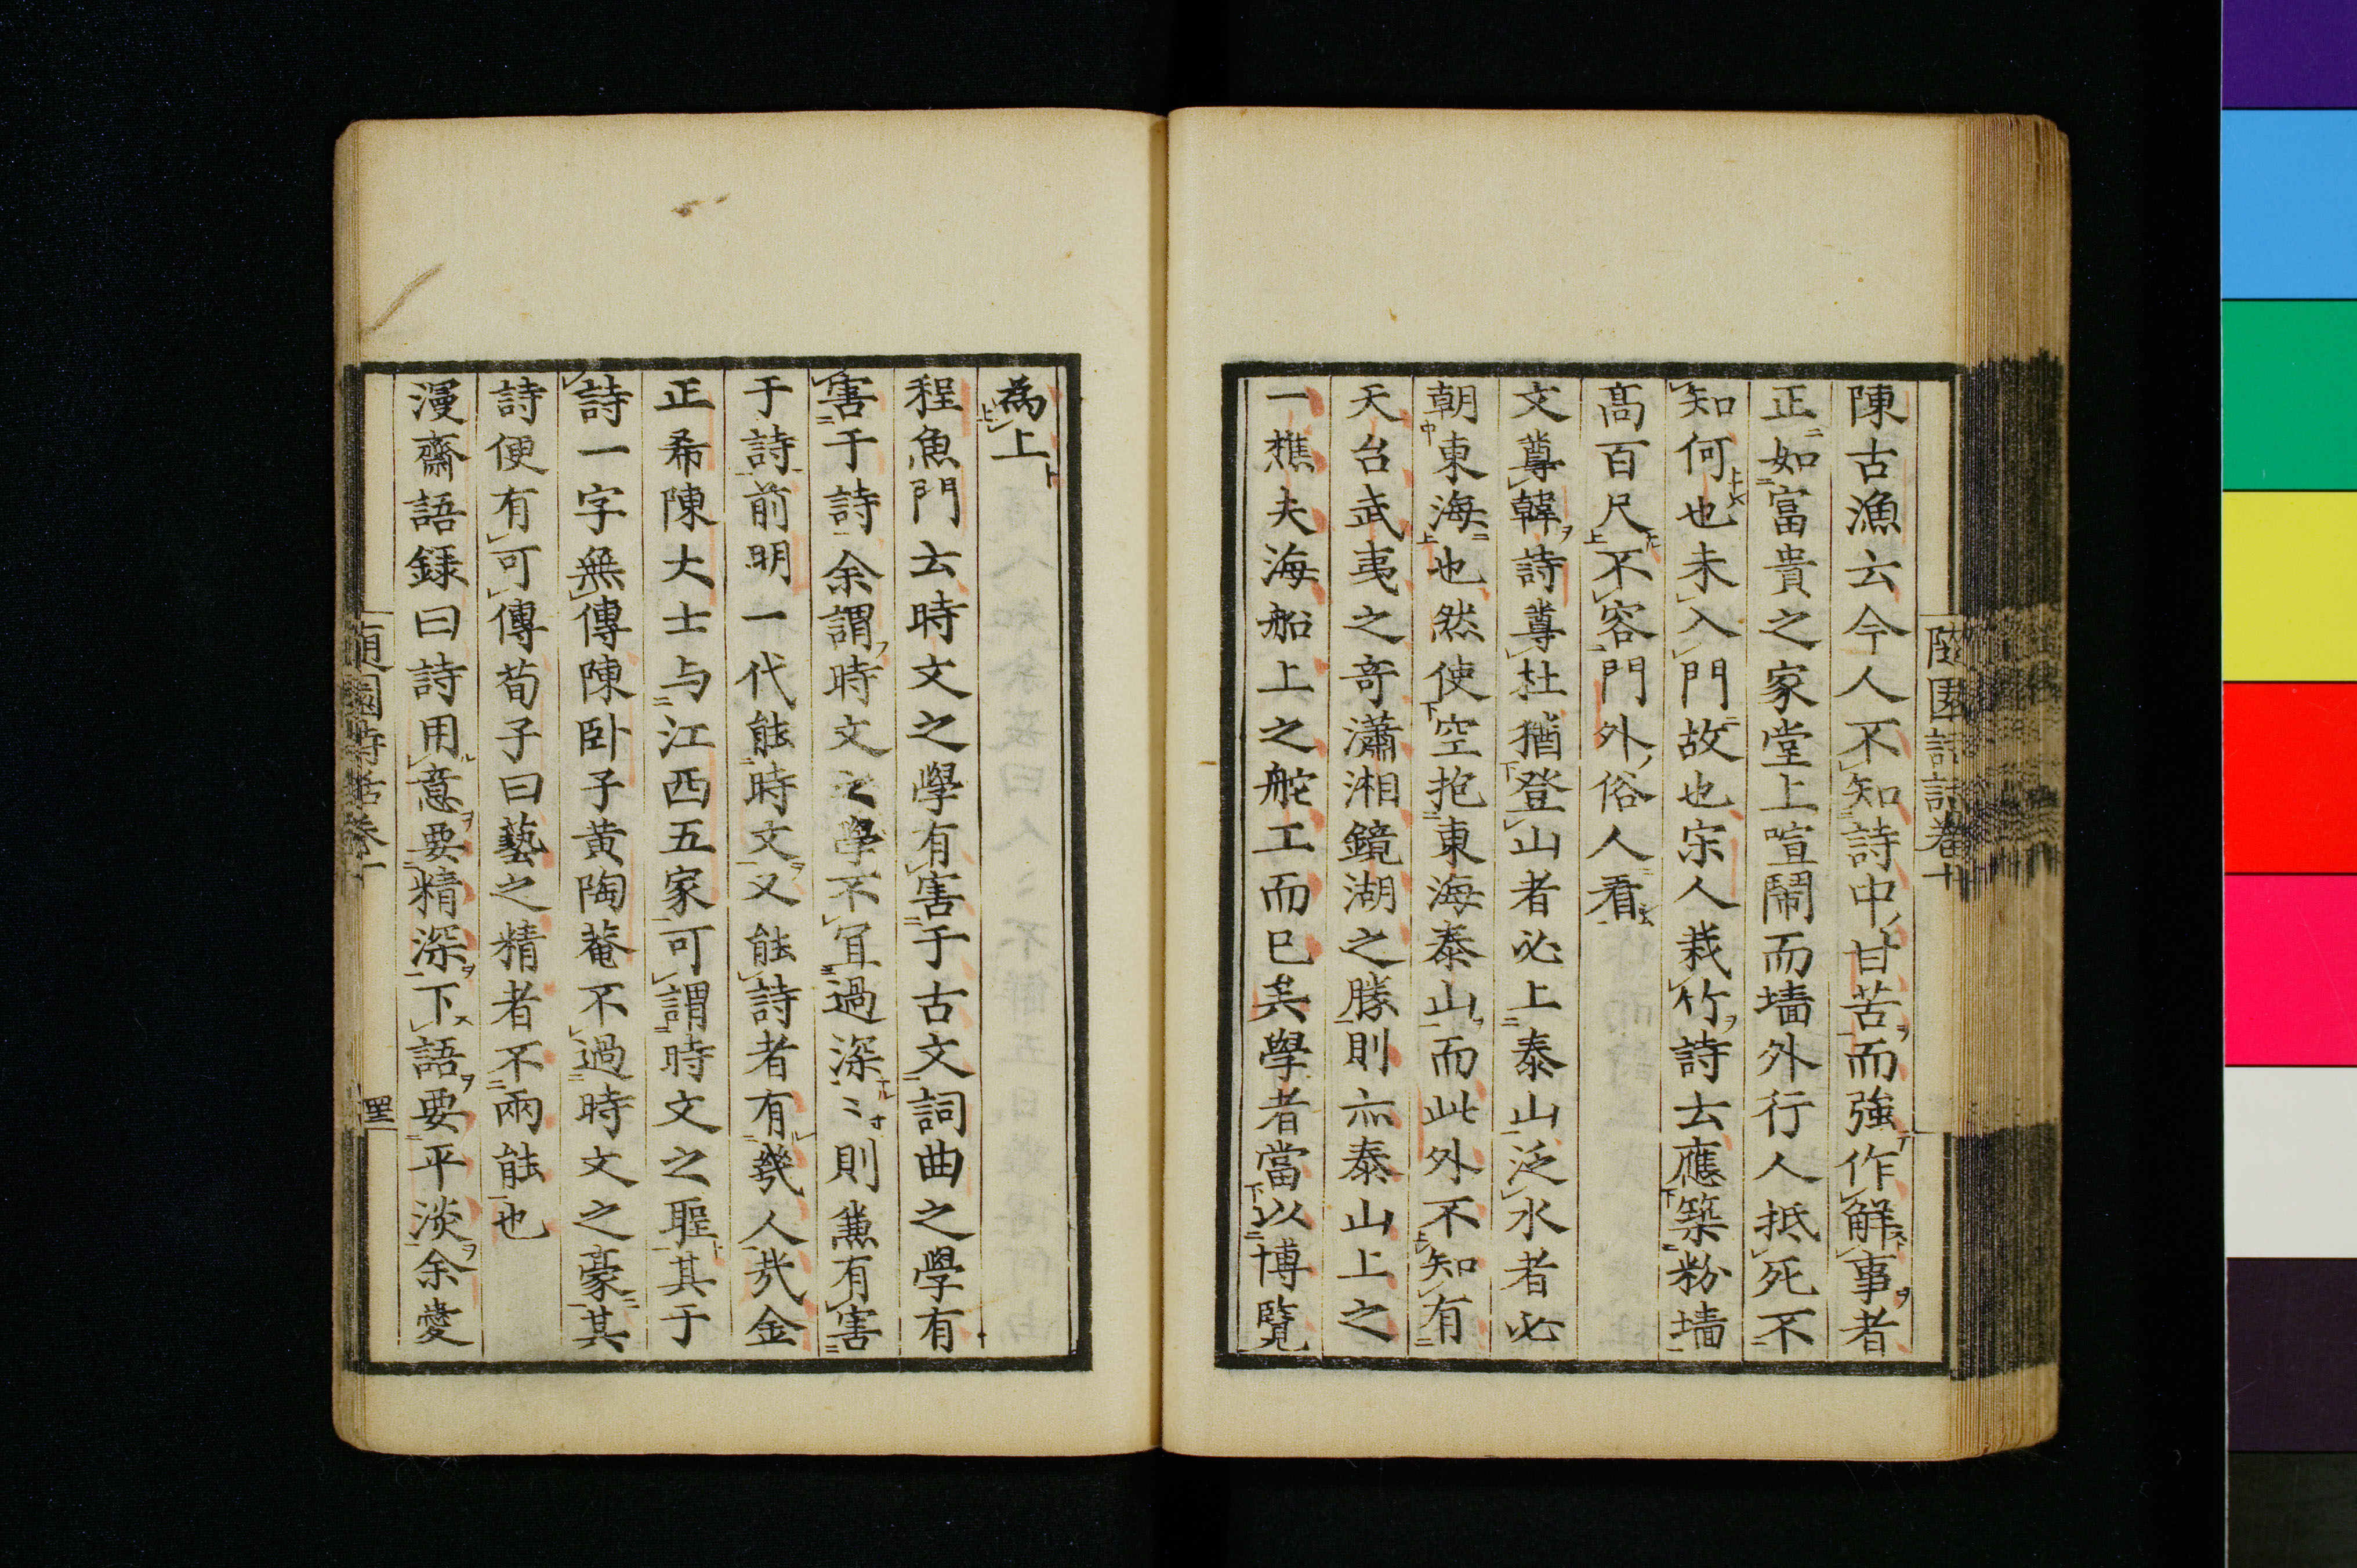 陳古漁云今人不知詩中甘苦而強作解事者
正如富貴之家堂上喧鬧而墻外行人抵死不
知何也未入門故也宋人栽竹詩云應築粉墻
高百尺不容門外俗人看
文尊韓詩尊杜猶登山者必上泰山泛水者必
朝東海也然使空抱東海泰山而此外不知有
天台武夷之奇瀟湘鏡湖之勝則亦泰山上之
一樵夫海船上之舵工而已矣學者當以博覽
為上
程魚門云時文之學有害于古文詞曲之學有
害于詩余謂時文之學不宜過深〻則兼有害
于詩前明一代能時文又能詩者有幾人哉金
正希陳大士与江西五家可謂時文之聖其于
詩一字無傳陳卧子黄陶菴不過時文之豪其
詩便有可傳荀子曰藝之精者不兩能也
漫齋語録曰詩用意要精深下語要平淡余愛
園詩話卷